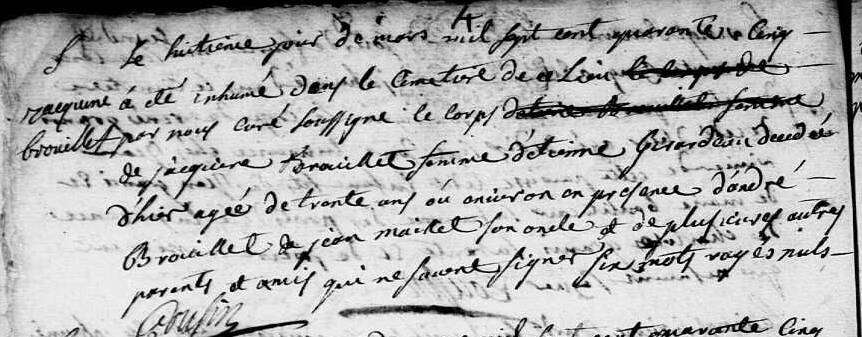 Le huitieme jour de mars mil sept cent quarante cinq
jacquine a été inhumé dans le Cemetiere de ce Lieu le corps de
brouillet par nous curé soussigné le corps detienne Brouillet femme
de jacquine Brouillet femme d'étienne Girardeau decedée
d'hier agée de trante ans ou anviron en presence d'andré
Brouillet de jean maillet son oncle et de plusieurs autres
parents et amis qui ne savent signer six mots rayés nuls
Cousin
mil sept cent quarante Cinq